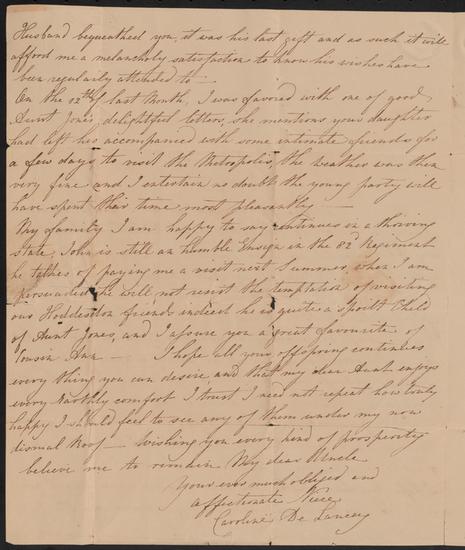 Husband bequeathed you, it was his last gift and as such it will
afford me a melancholy satisfaction to know his wishes have
been regularly attended to —
On the 12th of last Month, I was favored with one of good
Aunt Jones, delightful letters, she mentions your daughter
had left his accompanied with some intimate friends for
a few days to visit the Metropolis, the weather was then
very fine and I entertain no doubt the young party will
have spent their time most pleasantly —
My family I am happy to say continues in a thriving
state, John is still an humble Ensign in the 82 Regiment
he talkes of paying me a visit next Summer, when I am
persuaded he will not resist the temptation of visiting
our Hoddesdon friends indeed he is quite a spoilt Child
of Aunt Jones, and I assure you a great favourite of
Cousin Ann — I hope all your offspring continues
every thing you can desire and that my dear Aunt enjoys
every Earthly comfort I trust I need not repeat how truly
happy I should feel to see any of them under my now
dismal Roof — Wishing you every kind of prosperity
believe me to remain My dear Uncle
Your ever much obliged and
affectionate Niece
Caroline De Lancey